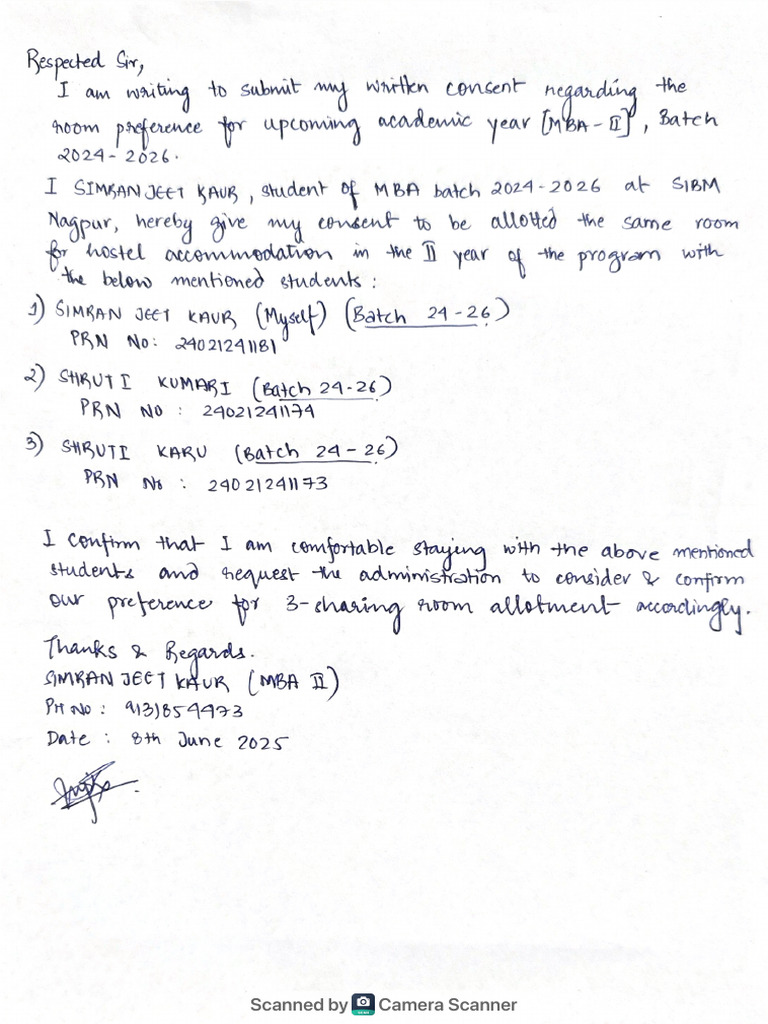 Respected Sir,
I am writing to submit my written consent regarding the
room preference for upcoming academic year [MBA - II], Batch
2024 - 2026.
I SIMRAN JEET KAUR, student of MBA batch 2024-2026 at SIBM
Nagpur, hereby give my consent to be allotted the same room
for hostel accommodation in the II year of the program with
the below mentioned students :
1) SIMRAN JEET KAUR (Myself) (Batch 24-26)
PRN No: 24021241181
2) SHRUTI KUMARI (Batch 24-26)
PRN NO : 24021241174
3) SHRUTI KARU (Batch 24-26)
PRN No : 24021241173
I confirm that I am comfortable staying with the above mentioned
students and request the administration to consider & confirm
our preference for 3-sharing room allotment accordingly.
Thanks & Regards.
SIMRAN JEET KAUR (MBA II)
PH NO : 9131854973
Date : 8th June 2025
Scanned by Camera Scanner